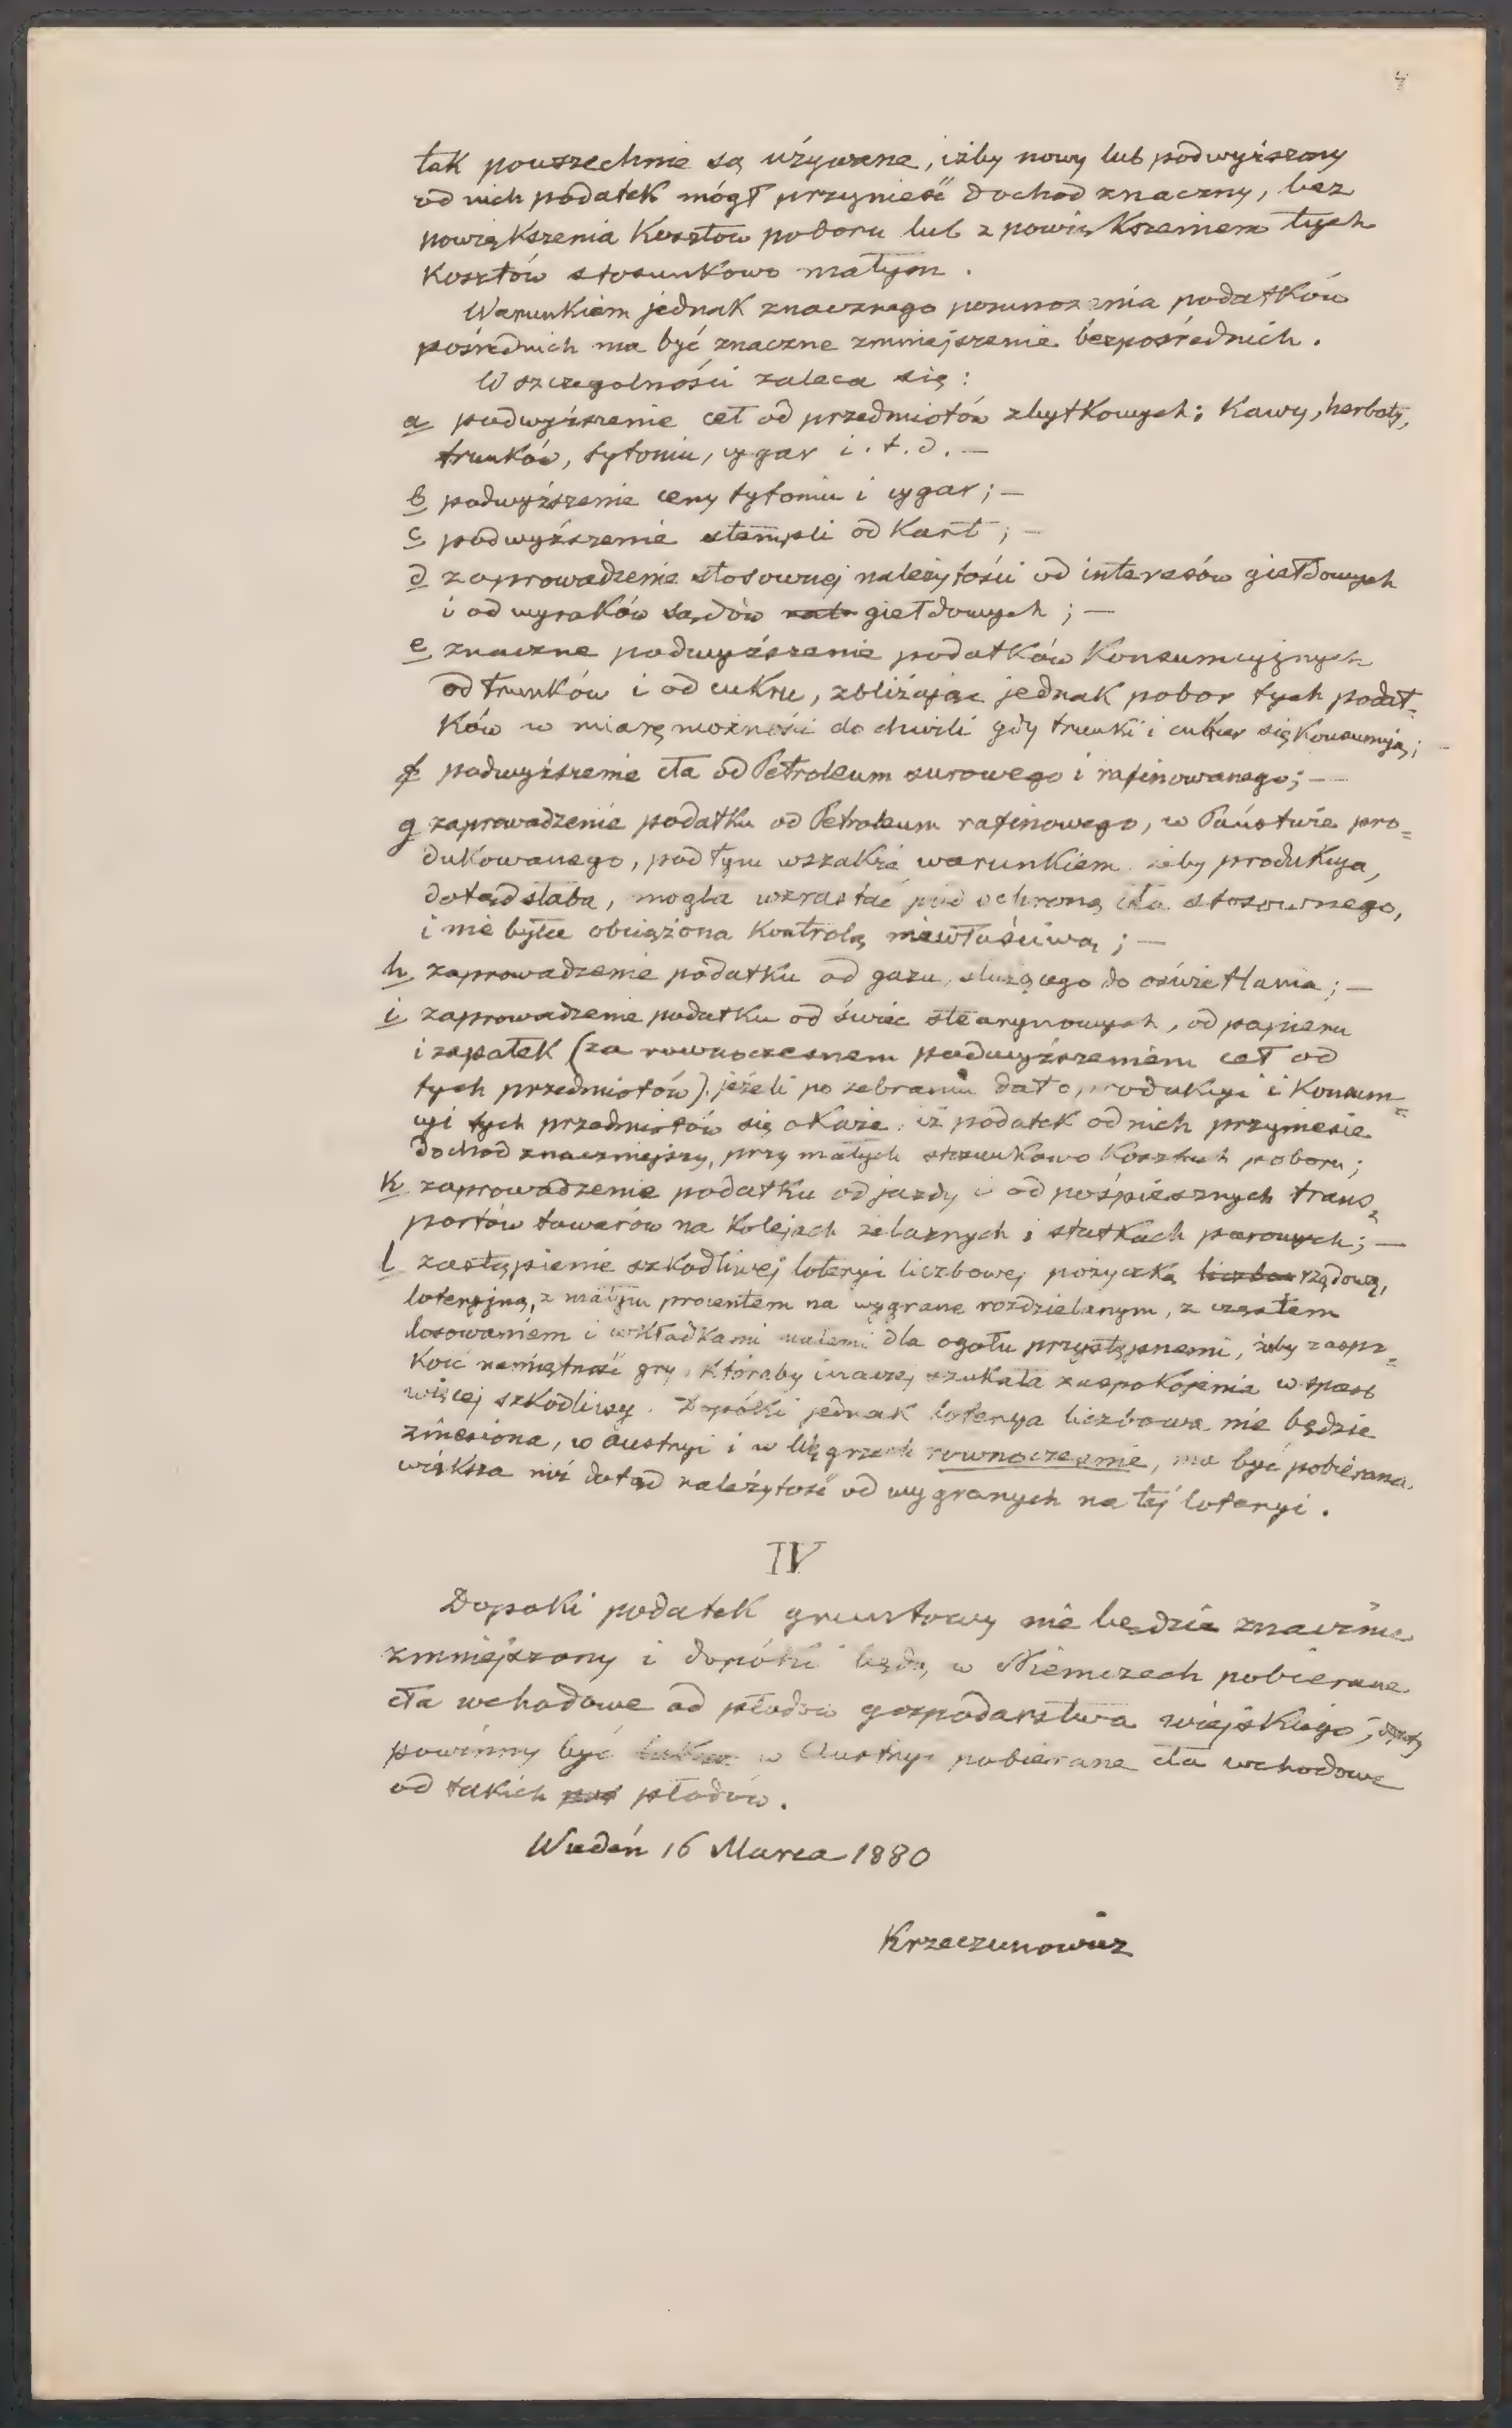 4
tak powszechnie są używane, iżby nowy lub podwyższony
od nich podatek mógł przynieść dochod znaczny, bez
powiększenia kosztow poboru lub z powiększeniem tych
kosztów stosunkowo małym.
Warunkiem jednak znacznego pomnożenia podatków
pośrednich ma być znaczne zmniejszenie bezpośrednich.
W szczegolności zaleca się:
a podwyższenie ceł od przedmiotów zbytkowych; kawy, herbaty,
trunków, tytoniu, cygar i.t.d. —
b podwyższenie ceny tytoniu i cygar; —
c podwyższenie stempli od kart; —
d zaprowadzenie stosownej należytości od interesów giełdowych
i od wyroków sądów giełdowych; —
e znaczne podwyższenie podatków konsumcyjnych
od trunków i od cukru, zbliżając jednak pobor tych podat=
ków w miarę możności do chwili gdy trunki i cukier się konsumują; —
f podwyższenie cła od Petroleum surowego i rafinowanego; —
g zaprowadzenie podatku od Petroleum rafinowego, w Państwie pro=
dukowanego, pod tym wszakże warunkiem żeby produkcya,
dotąd słaba, mogła wzrastać pod ochroną cła stosownego,
i nie była obciążona kontrolą niewłaściwą; —
h zaprowadzenie podatku od gazu, służącego do oświetlania; —
i zaprowadzenie podatku od świec stearynowych, od papieru
i zapałek (za rownoczesnem podwyższeniem ceł od
tych przedmiotów), jeżeli po zebraniu dat o produkcyi i konsum=
cyi tych przedmiotów się okaże, iż podatek od nich przyniesie
dochod znaczniejszy, przy małych stosunkowo kosztach poboru;
k zaprowadzenie podatku od jazdy i od pośpiesznych trans=
portów towarów na kolejach żelaznych i statkach parowych; —
l zastąpienie szkodliwej loteryi liczbowej pożyczką rządową,
loteryjną, z małym procentem na wygrane rozdzielanym, z częstem
losowaniem i wkładkami małemi dla ogołu przystępnemi, żeby zaspo=
koić namiętność gry, któraby inaczej szukała zaspokojenia w sposb
więcej szkodliwy. Dopóki jednak loterya liczbowa nie będzie
zniesiona, w Austryi i w Węgrzech rownocześnie, ma być pobierana
większa niż dotąd należytość od wygranych na tej loteryi.
IV
Dopoki podatek gruntowy nie będzie znacznie
zmniejszony i dopóki będą w Niemczech pobierane
cła wchodowe od płodow gospodarstwa wiejskiego,
powinny być także w Austryi pobierane cła wchodowe
od takich płodów.
Wiedeń 16 Marca 1880
Krzeczunowicz